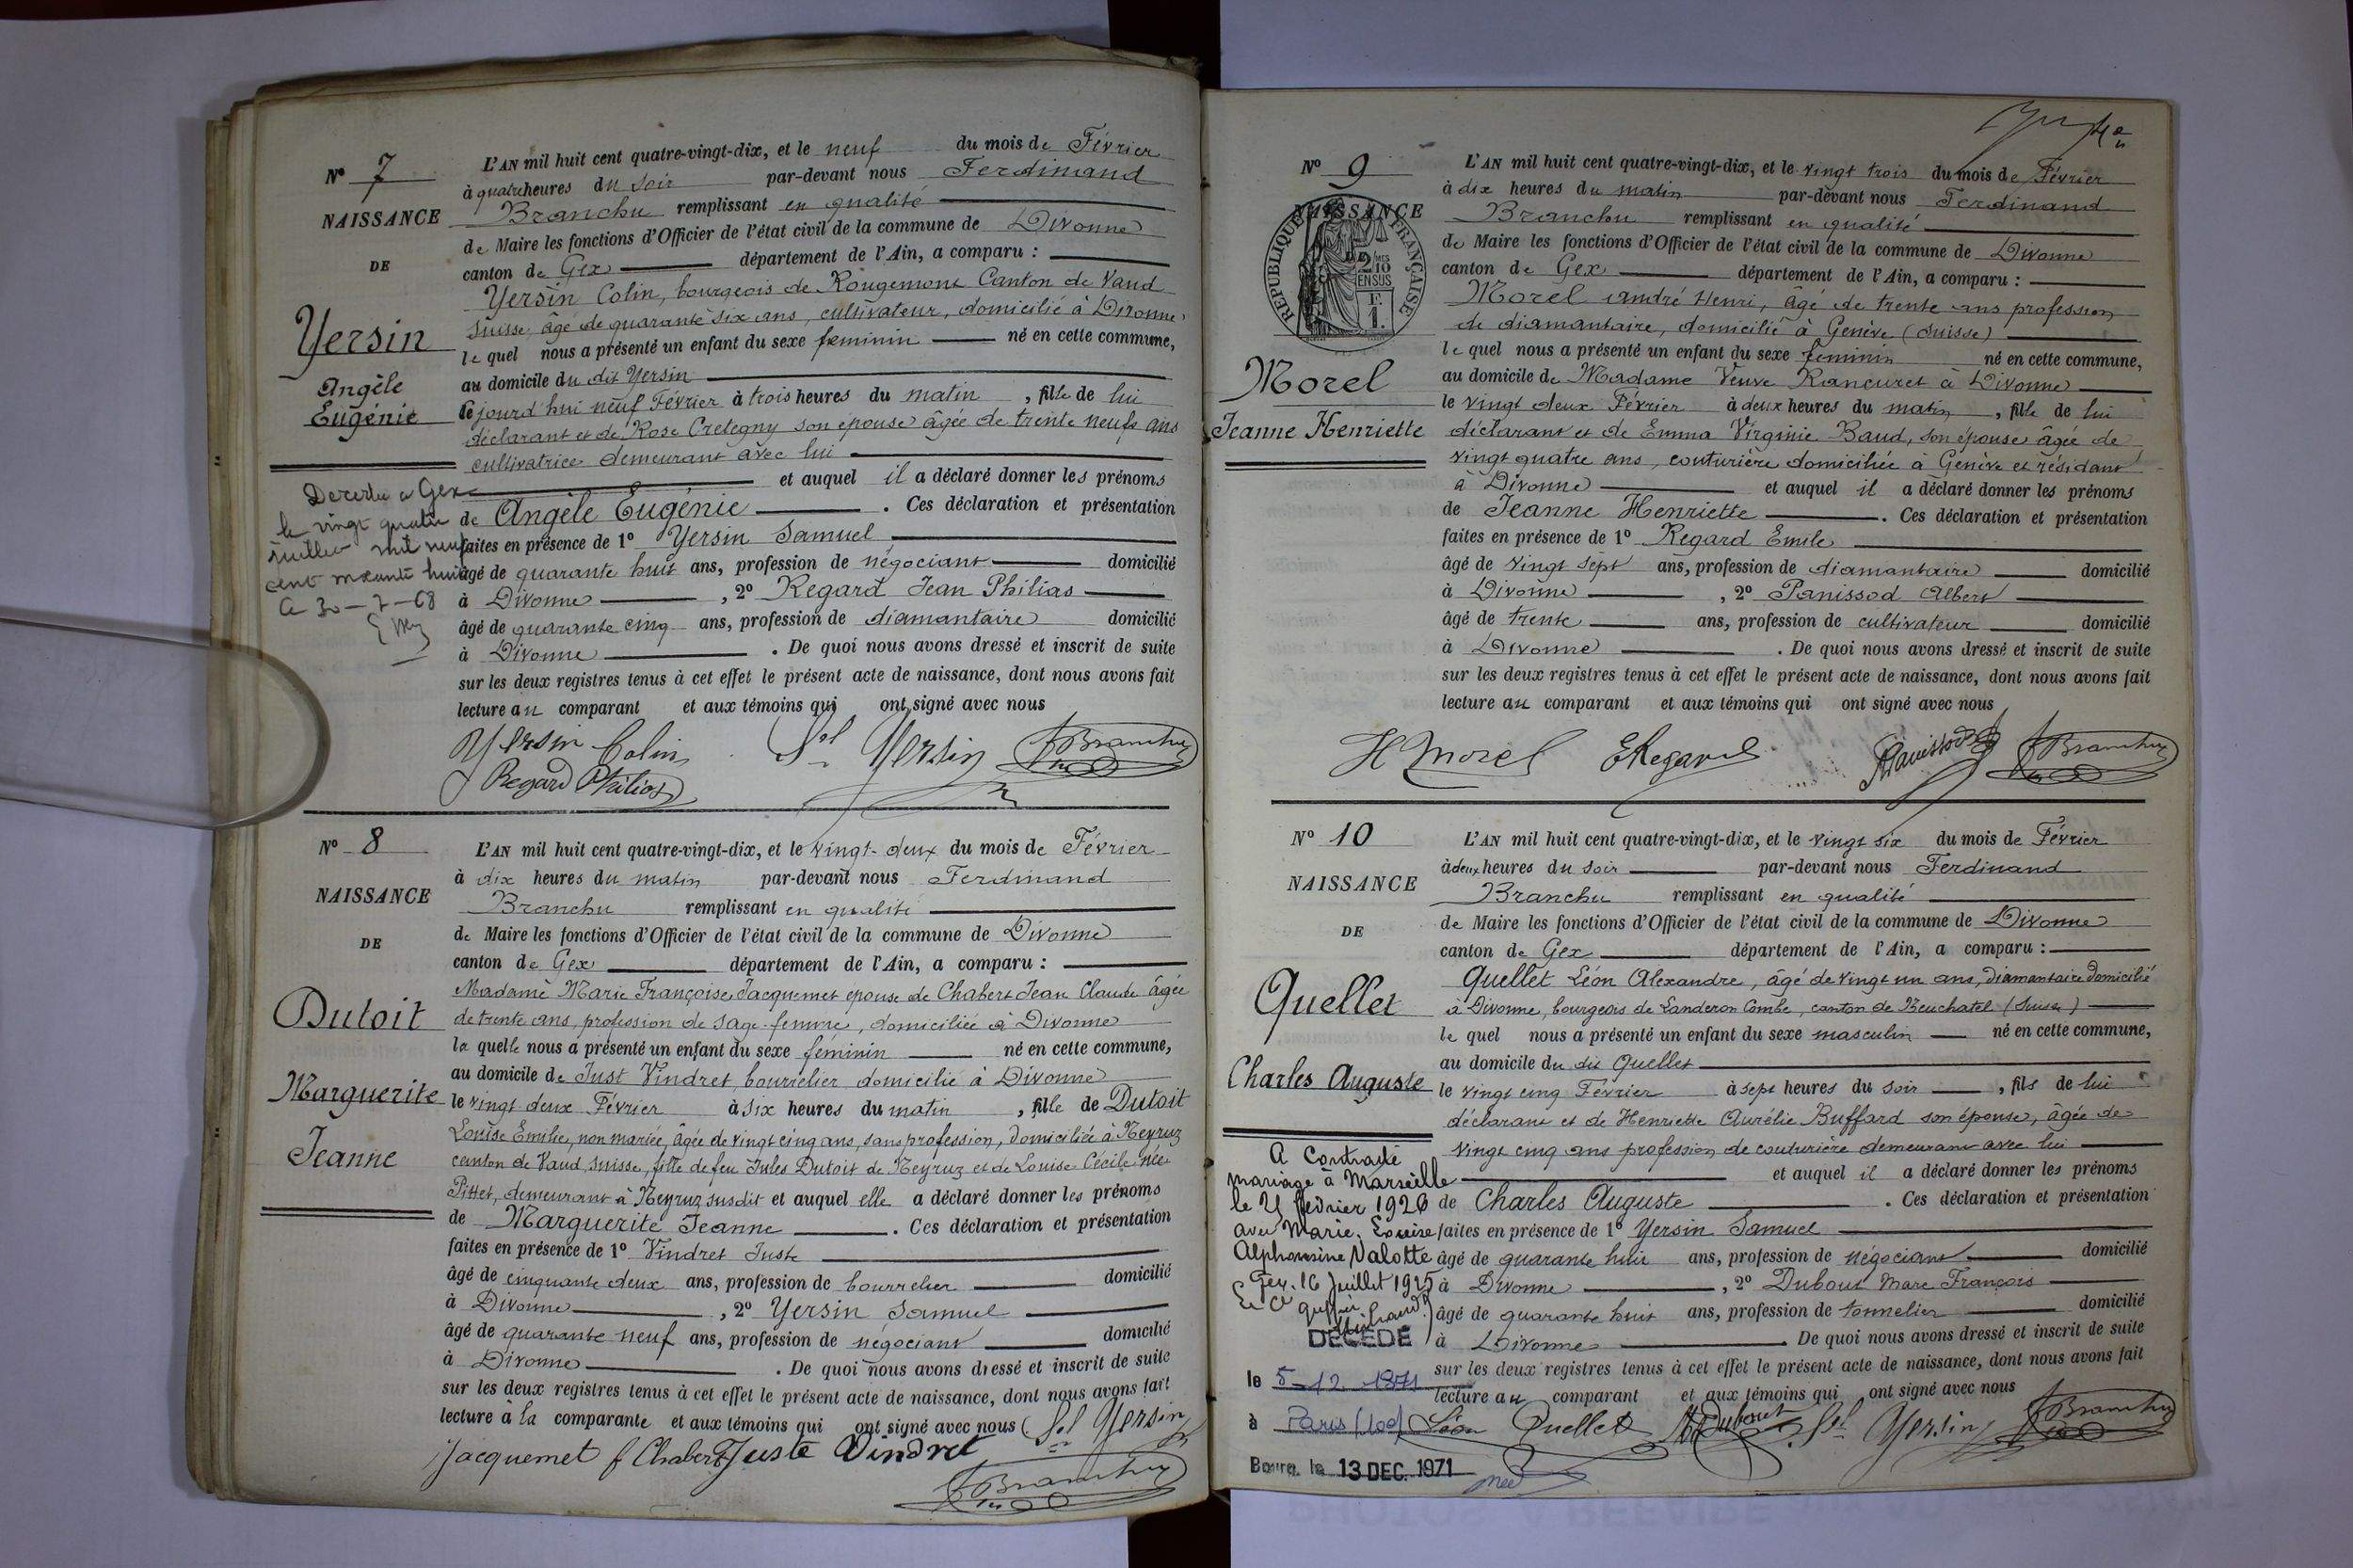 N° 7
NAISSANCE
DE
Yersin
Angèle
Eugénie
Décédée à Gex
le vingt quatre
juillet mil neuf
cent soixante huit
30-7-68
L'AN mil huit cent quatre-vingt-dix, et le neuf du mois de Février
à quatre heures du soir par-devant nous Ferdinand
Branchu remplissant en qualité
de Maire les fonctions d'Officier de l'état civil de la commune de Divonne
canton de Gex département de l'Ain, a comparu :
Yersin Colin, bourgeois de Rougemont Canton de Vaud
Suisse, âgé de quarante six ans, cultivateur, domicilié à Divonne,
le quel nous a présenté un enfant du sexe féminin né en cette commune,
au domicile du dit Yersin
Cejourd'hui neuf Février à trois heures du matin, fille de lui
déclarant et de Rose Cretegny son épouse âgée de trente neuf ans
cultivatrice demeurant avec lui
et auquel il a déclaré donner les prénoms
de Angèle Eugénie. Ces déclaration et présentation
faites en présence de 1° Yersin Samuel
âgé de quarante huit ans, profession de négociant domicilié
à Divonne, 2° Regard Jean Philias
âgé de quarante cinq ans, profession de diamantaire domicilié
à Divonne. De quoi nous avons dressé et inscrit de suite
sur les deux registres tenus à cet effet le présent acte de naissance, dont nous avons fait
lecture au comparant et aux témoins qui ont signé avec nous
Yersin Colin Sel Yersin F Branchu
Regard Philias
N° 8
NAISSANCE
DE
Dutoit
Marguerite
Jeanne
L'AN mil huit cent quatre-vingt-dix, et le vingt-deux du mois de Février
à dix heures du matin par-devant nous Ferdinand
Branchu remplissant en qualité
de Maire les fonctions d'Officier de l'état civil de la commune de Divonne
canton de Gex département de l'Ain, a comparu :
Madame Marie Françoise Jacquemet épouse de Chabert Jean Claude âgée
de trente ans, profession de sage-femme, domiciliée à Divonne
la quelle nous a présenté un enfant du sexe féminin né en cette commune,
au domicile de Just Vindret bourrelier domicilié à Divonne
le vingt deux Février à six heures du matin, fille de Dutoit
Louise Emilie, non mariée, âgée de vingt cinq ans, sans profession, domiciliée à Neyruz
canton de Vaud, Suisse, fille de feu Jules Dutoit de Neyruz et de Louise Cécile née
Pittet, demeurant à Neyruz susdit et auquel elle a déclaré donner les prénoms
de Marguerite Jeanne. Ces déclaration et présentation
faites en présence de 1° Vindret Juste
âgé de cinquante deux ans, profession de bourrelier domicilié
à Divonne, 2° Yersin Samuel
âgé de quarante neuf ans, profession de négociant domicilié
à Divonne. De quoi nous avons dressé et inscrit de suite
sur les deux registres tenus à cet effet le présent acte de naissance, dont nous avons fait
lecture à la comparante et aux témoins qui ont signé avec nous Sel Yersin
Jacquemet f Chabert Juste Vindret
F Branchu
N° 9
NAISSANCE
REPUBLIQUE FRANÇAISE
Morel
Jeanne Henriette
L'AN mil huit cent quatre-vingt-dix, et le vingt trois du mois de Février
à dix heures du matin par-devant nous Ferdinand
Branchu remplissant en qualité
de Maire les fonctions d'Officier de l'état civil de la commune de Divonne
canton de Gex département de l'Ain, a comparu :
Morel André Henri, âgé de trente ans profession
de diamantaire, domicilié à Genève (Suisse)
le quel nous a présenté un enfant du sexe féminin né en cette commune,
au domicile de Madame Veuve Rancuret à Divonne
le vingt deux Février à deux heures du matin, fille de lui
déclarant et de Emma Virginie Baud, son épouse âgée de
vingt quatre ans, couturière domiciliée à Genève et résidant
à Divonne et auquel il a déclaré donner les prénoms
de Jeanne Henriette. Ces déclaration et présentation
faites en présence de 1° Regard Emile
âgé de vingt sept ans, profession de diamantaire domicilié
à Divonne, 2° Panissod Albert
âgé de trente ans, profession de cultivateur domicilié
à Divonne. De quoi nous avons dressé et inscrit de suite
sur les deux registres tenus à cet effet le présent acte de naissance, dont nous avons fait
lecture au comparant et aux témoins qui ont signé avec nous
H Morel E Regard Panissod F Branchu
N° 10
NAISSANCE
DE
Quellet
Charles Auguste
A Contracté
mariage à Marseille
le 21 février 1920
avec Marie, Louise
Alphonsine Valotte
Gex. 16 Juillet 1925
DÉCÉDÉ
le 5-12-1971
à Paris (10e)
Bourg, le 13 DEC. 1971
L'AN mil huit cent quatre-vingt-dix, et le vingt six du mois de Février
à deux heures du soir par-devant nous Ferdinand
Branchu remplissant en qualité
de Maire les fonctions d'Officier de l'état civil de la commune de Divonne
canton de Gex département de l'Ain, a comparu :
Quellet Léon Alexandre, âgé de vingt un ans, diamantaire domicilié
à Divonne, bourgeois de Landeron Combe, canton de Neuchatel (Suisse)
le quel nous a présenté un enfant du sexe masculin né en cette commune,
au domicile du dit Quellet
le vingt cinq Février à sept heures du soir, fils de lui
déclarant et de Henriette Aurélie Buffard son épouse, âgée de
vingt cinq ans profession de couturière demeurant avec lui
et auquel il a déclaré donner les prénoms
de Charles Auguste. Ces déclaration et présentation
faites en présence de 1° Yersin Samuel
âgé de quarante huit ans, profession de négociant domicilié
à Divonne, 2° Dubout Marc François
âgé de quarante huit ans, profession de tonnelier domicilié
à Divonne. De quoi nous avons dressé et inscrit de suite
sur les deux registres tenus à cet effet le présent acte de naissance, dont nous avons fait
lecture au comparant et aux témoins qui ont signé avec nous
Léon Quellet Dubout Sel Yersin F Branchu